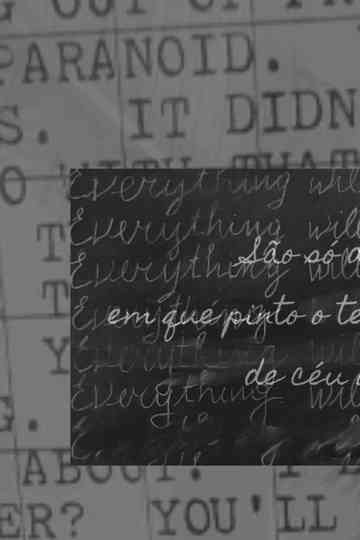 OUT OF
PARANOID.
S. IT DIDN
O WITH THAT
Everything will
Everything will
São só d
Everything will
em que pinto o te
Everything
de céu
Everything will
G.
ABOUT. I
ER? YOU'LL